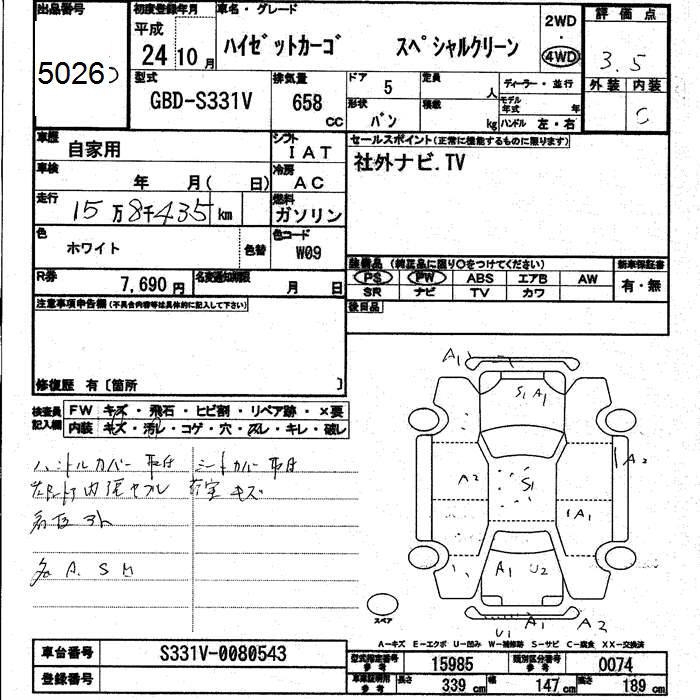 出品番号
5026
初度登録年月
平成
24 10 月
車名・グレード
ハイゼットカーゴ スペシャルクリーン
2WD
・
4WD
評価点
3.5
外装 内装
C
型式
GBD-S331V
排気量
658
cc
ドア
5
定員
人
ディーラー・並行
形状
バン
積載
kg
モデル年式
年
ハンドル 左・右
車歴
自家用
シフト
IAT
車検
年 月( 日)
冷房
AC
走行
15万8千435km
燃料
ガソリン
色
ホワイト
色替
色コード
W09
R券
7,690 円
名変通知期限
月 日
セールスポイント(正常に機能するものに限ります)
社外ナビ.TV
装備品 (純正品に限り○をつけてください)
新車保証書
PS PW ABS エアB AW
有・無
SR ナビ TV カワ
後日品
注意事項申告欄(不具合内容等は具体的に記入して下さい)
修復歴 有〔箇所 〕
検査員記入欄
FW キズ・飛石・ヒビ割・リペア跡・×要
内装 キズ・汚レ・コゲ・穴・スレ・キレ・破レ
ハンドルカバー取付 シートカバー取付
内張 キズ
A. S
A1
S1 A1
A2
A2
S1
A1
A1 U2
A1 A2
U1
スペア
A-キズ E-エクボ U-凹み W-補修跡 S-サビ C-腐食 XX-交換済
車台番号
S331V-0080543
登録番号
型式指定番号
参考
15985
類別区分番号
参考
0074
車庫証明用
参考
長さ
339 cm
幅
147 cm
高さ
189 cm